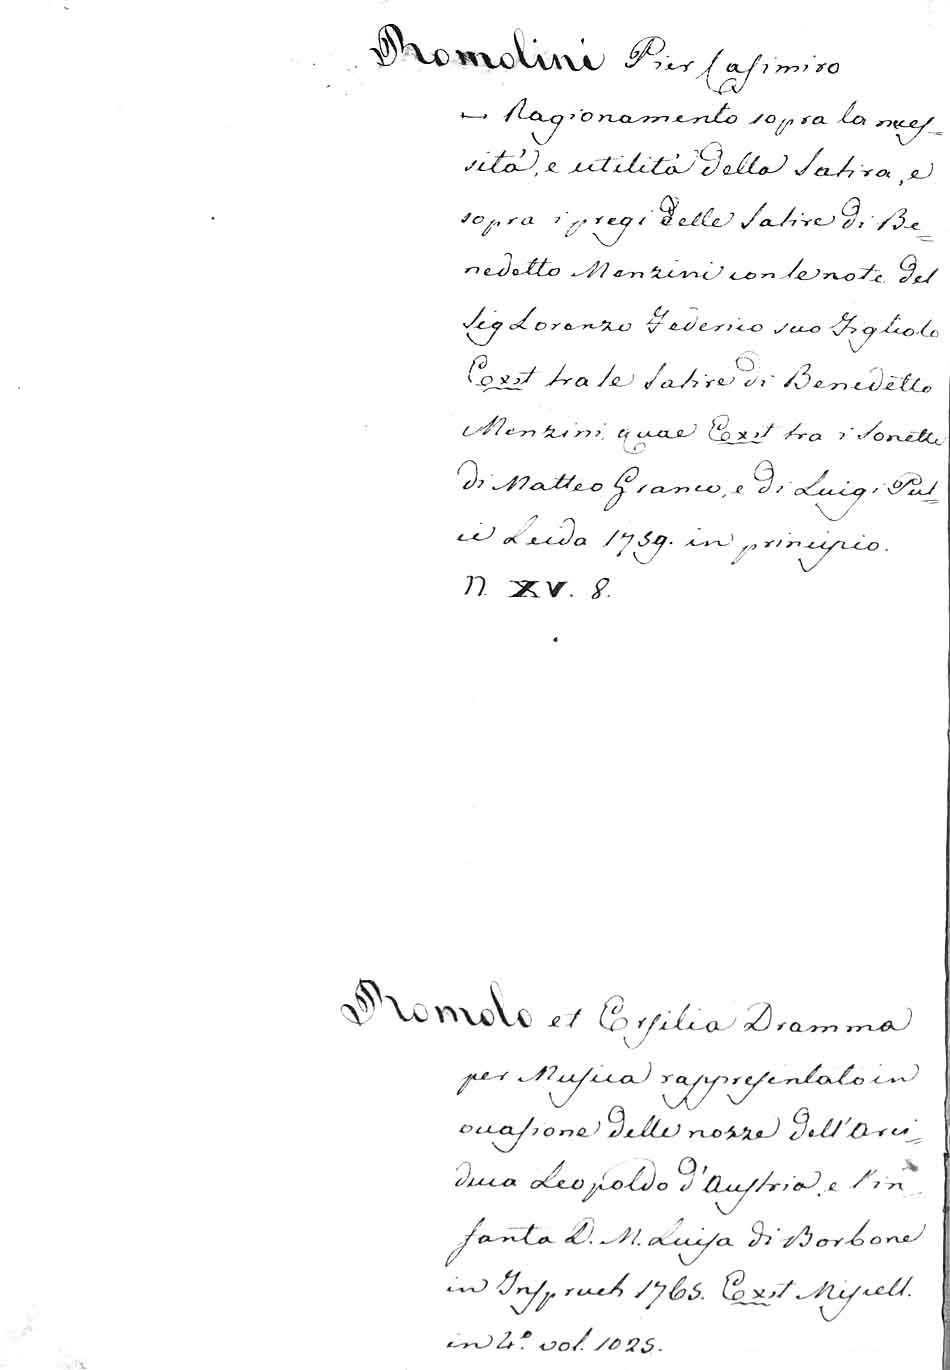 Romolini Pier Casimiro
— Ragionamento sopra la neces=
sitá, e utilitá della Satira, e
sopra i pregi delle Satire di Be=
nedetto Menzini con le note del
Sig Lorenzo Federico suo Figliolo
Exst tra le Satire di Benedetto
Menzini, quae Exst tra i Sonetti
di Matteo Franco, e di Luigi Pul=
ci Leida 1759. in principio.
N. XV. 8.
Romolo et Ersilia Dramma
per Musica rappresentato in
occasione delle nozze dell'Arci=
duca Leopoldo d'Austria, e l'in=
fanta D. M. Luisa di Borbone
in Inspruch 1765. Exst Miscell.
in 4º. vol. 1025.